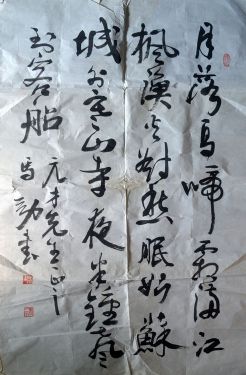 月落烏啼霜滿江
楓漁火對愁眠姑蘇
城外寒山寺夜半鐘聲
到客船
元才先生正之
馬勁書